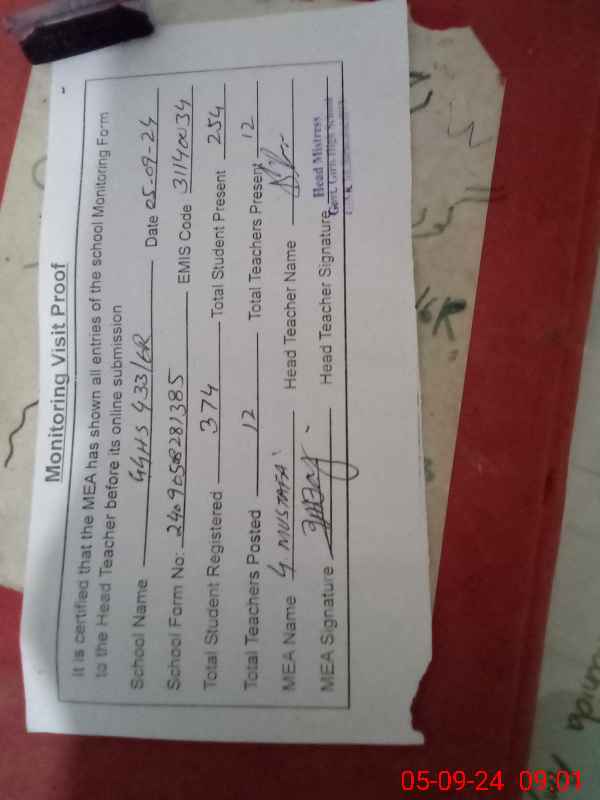 Monitoring Visit Proof
It is certified that the MEA has shown all entries of the school Monitoring Form
to the Head Teacher before its online submission
School Name GGHS 433/6R Date 05-09-24
School Form No: 24090508281385 EMIS Code 31140034
Total Student Registered 374 Total Student Present 254
Total Teachers Posted 12 Total Teachers Present 12
MEA Name G. MUSTAFA Head Teacher Name
MEA Signature Head Teacher Signature
Head Mistress
Govt. Girls High School
05-09-24 09:01